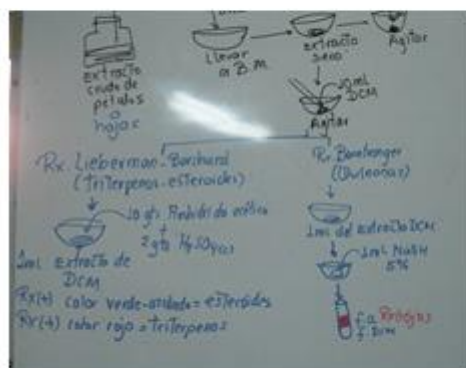 Extracto
crudo de
petalos
o
hojas
Llevar
a B.M.
extracto
seco
Agitar
DCM
Agitar
Rx. Lieberman-Burchard
(Triterpenos-esteroides)
10 gts Anhidrido acético
+
2 gts H2SO4(cc)
1mL extracto de
DCM
Rx(+) color verde-azulado = esteroides
Rx(+) color rojo = triterpenos
Rx Borntranger
(Quinonas)
1mL del extracto DCM
1mL NaOH
5%
f.a Rx(+)rojas
f. DCM